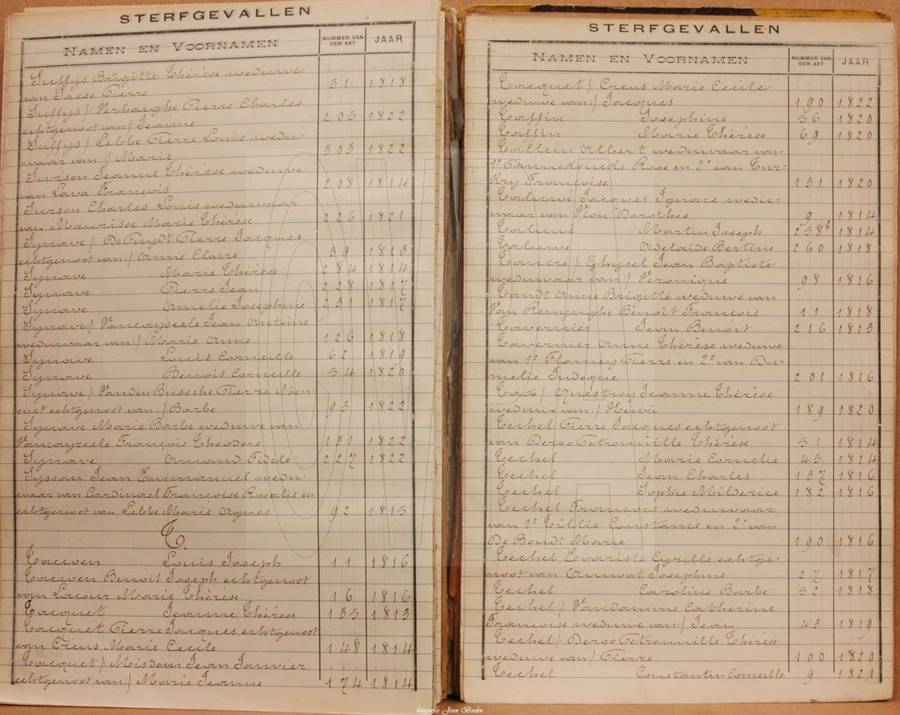 STERFGEVALLEN
NAMEN EN VOORNAMEN NUMMER VAN DEN AKT JAAR
Suffys Brigitte Thérèse weduwe
van Saese Pierre 31 1818
Suffys / Verhaeghe Pierre Charles
echtgenoot van / Jeanne 205 1822
Suffys / Lebbe Pierre Louis wedu-
waar van / Marie 303 1822
Surson Jeanne Thérèse weduwe
van Lava François 208 1814
Surson Charles Louis weduwaar
van Maurisse Marie Thérèse 226 1821
Synave / De Puydt Pierre Jacques
echtgenoot van / Anne Claire 39 1813
Synave Marie Thérèse 284 1814
Synave Pierre Jean 228 1817
Synave Amelie Josephine 231 1817
Synave / Vancayseele Jean Antoine
weduwaar van / Marie Anne 126 1818
Synave Louis Corneille 62 1819
Synave Benoit Corneille 34 1820
Synave / Vanden Bussche Pierre
echtgenoot van / Barbe 93 1822
Synave Marie Barbe weduwe van
François Theodore 131 1822
Synave Amand Fidele 227 1822
Syssau Jean Emmanuel wedu-
waar van Cardinael Françoise Rosalie en
echtgenoot van Lebbe Marie Agnes 92 1815
T.
Taccoen Louis Joseph 11 1816
Taccoen Benoit Joseph echtgenoot
van Lacour Marie Thérèse 16 1816
Tacquet Jeanne Thérèse 135 1813
Tacquet Pierre Jacques echtgenoot
van Creus Marie Cecile 148 1814
Tacquet / Jean Janvier
echtgenoot van / Marie Jeanne 174 1814
STERFGEVALLEN
NAMEN EN VOORNAMEN NUMMER VAN DEN AKT JAAR
Tacquet / Creus Marie Cecile
weduwe van / Jacques 190 1822
Taffin Josephine 36 1820
Taffin Marie Thérèse 69 1820
Albert weduwaar van
1° Rose en 2° van
Françoise 131 1820
Jacques Ignace wedu-
waar van Dorothée 9 1814
Martin Joseph 238b 1814
Adelaïde Bertine 260 1818
Tancré / Ghysel Jean Baptiste
weduwaar van / Véronique 98 1816
Tandt Anne Brigitte weduwe van
Benoit François 11 1818
Tavernier Jean Benoit 216 1813
Tavernier Anne Thérèse weduwe
van 1° Flamey Pierre en 2° van
201 1816
Jeanne Thérèse
weduwe van / Henri 189 1820
Techel Pierre Jacques echtgenoot
van Deroo Pétronille Thérèse 31 1814
Techel Marie Cornelie 45 1814
Techel Jean Charles 137 1816
Techel Sophie 182 1816
Techel François weduwaar
van 1° Tillie Constance en 2° van
De Boudt Marie 190 1816
Techel Evariste Cyrille echtge-
noot van Josephine 27 1817
Techel Caroline Barbe 52 1818
Techel / Vandamme Catherine
Françoise weduwe van / Jean 43 1819
Techel / Deroo Pétronille Thérèse
weduwe van / Pierre 100 1820
Techel Constantin Corneille 9 1821